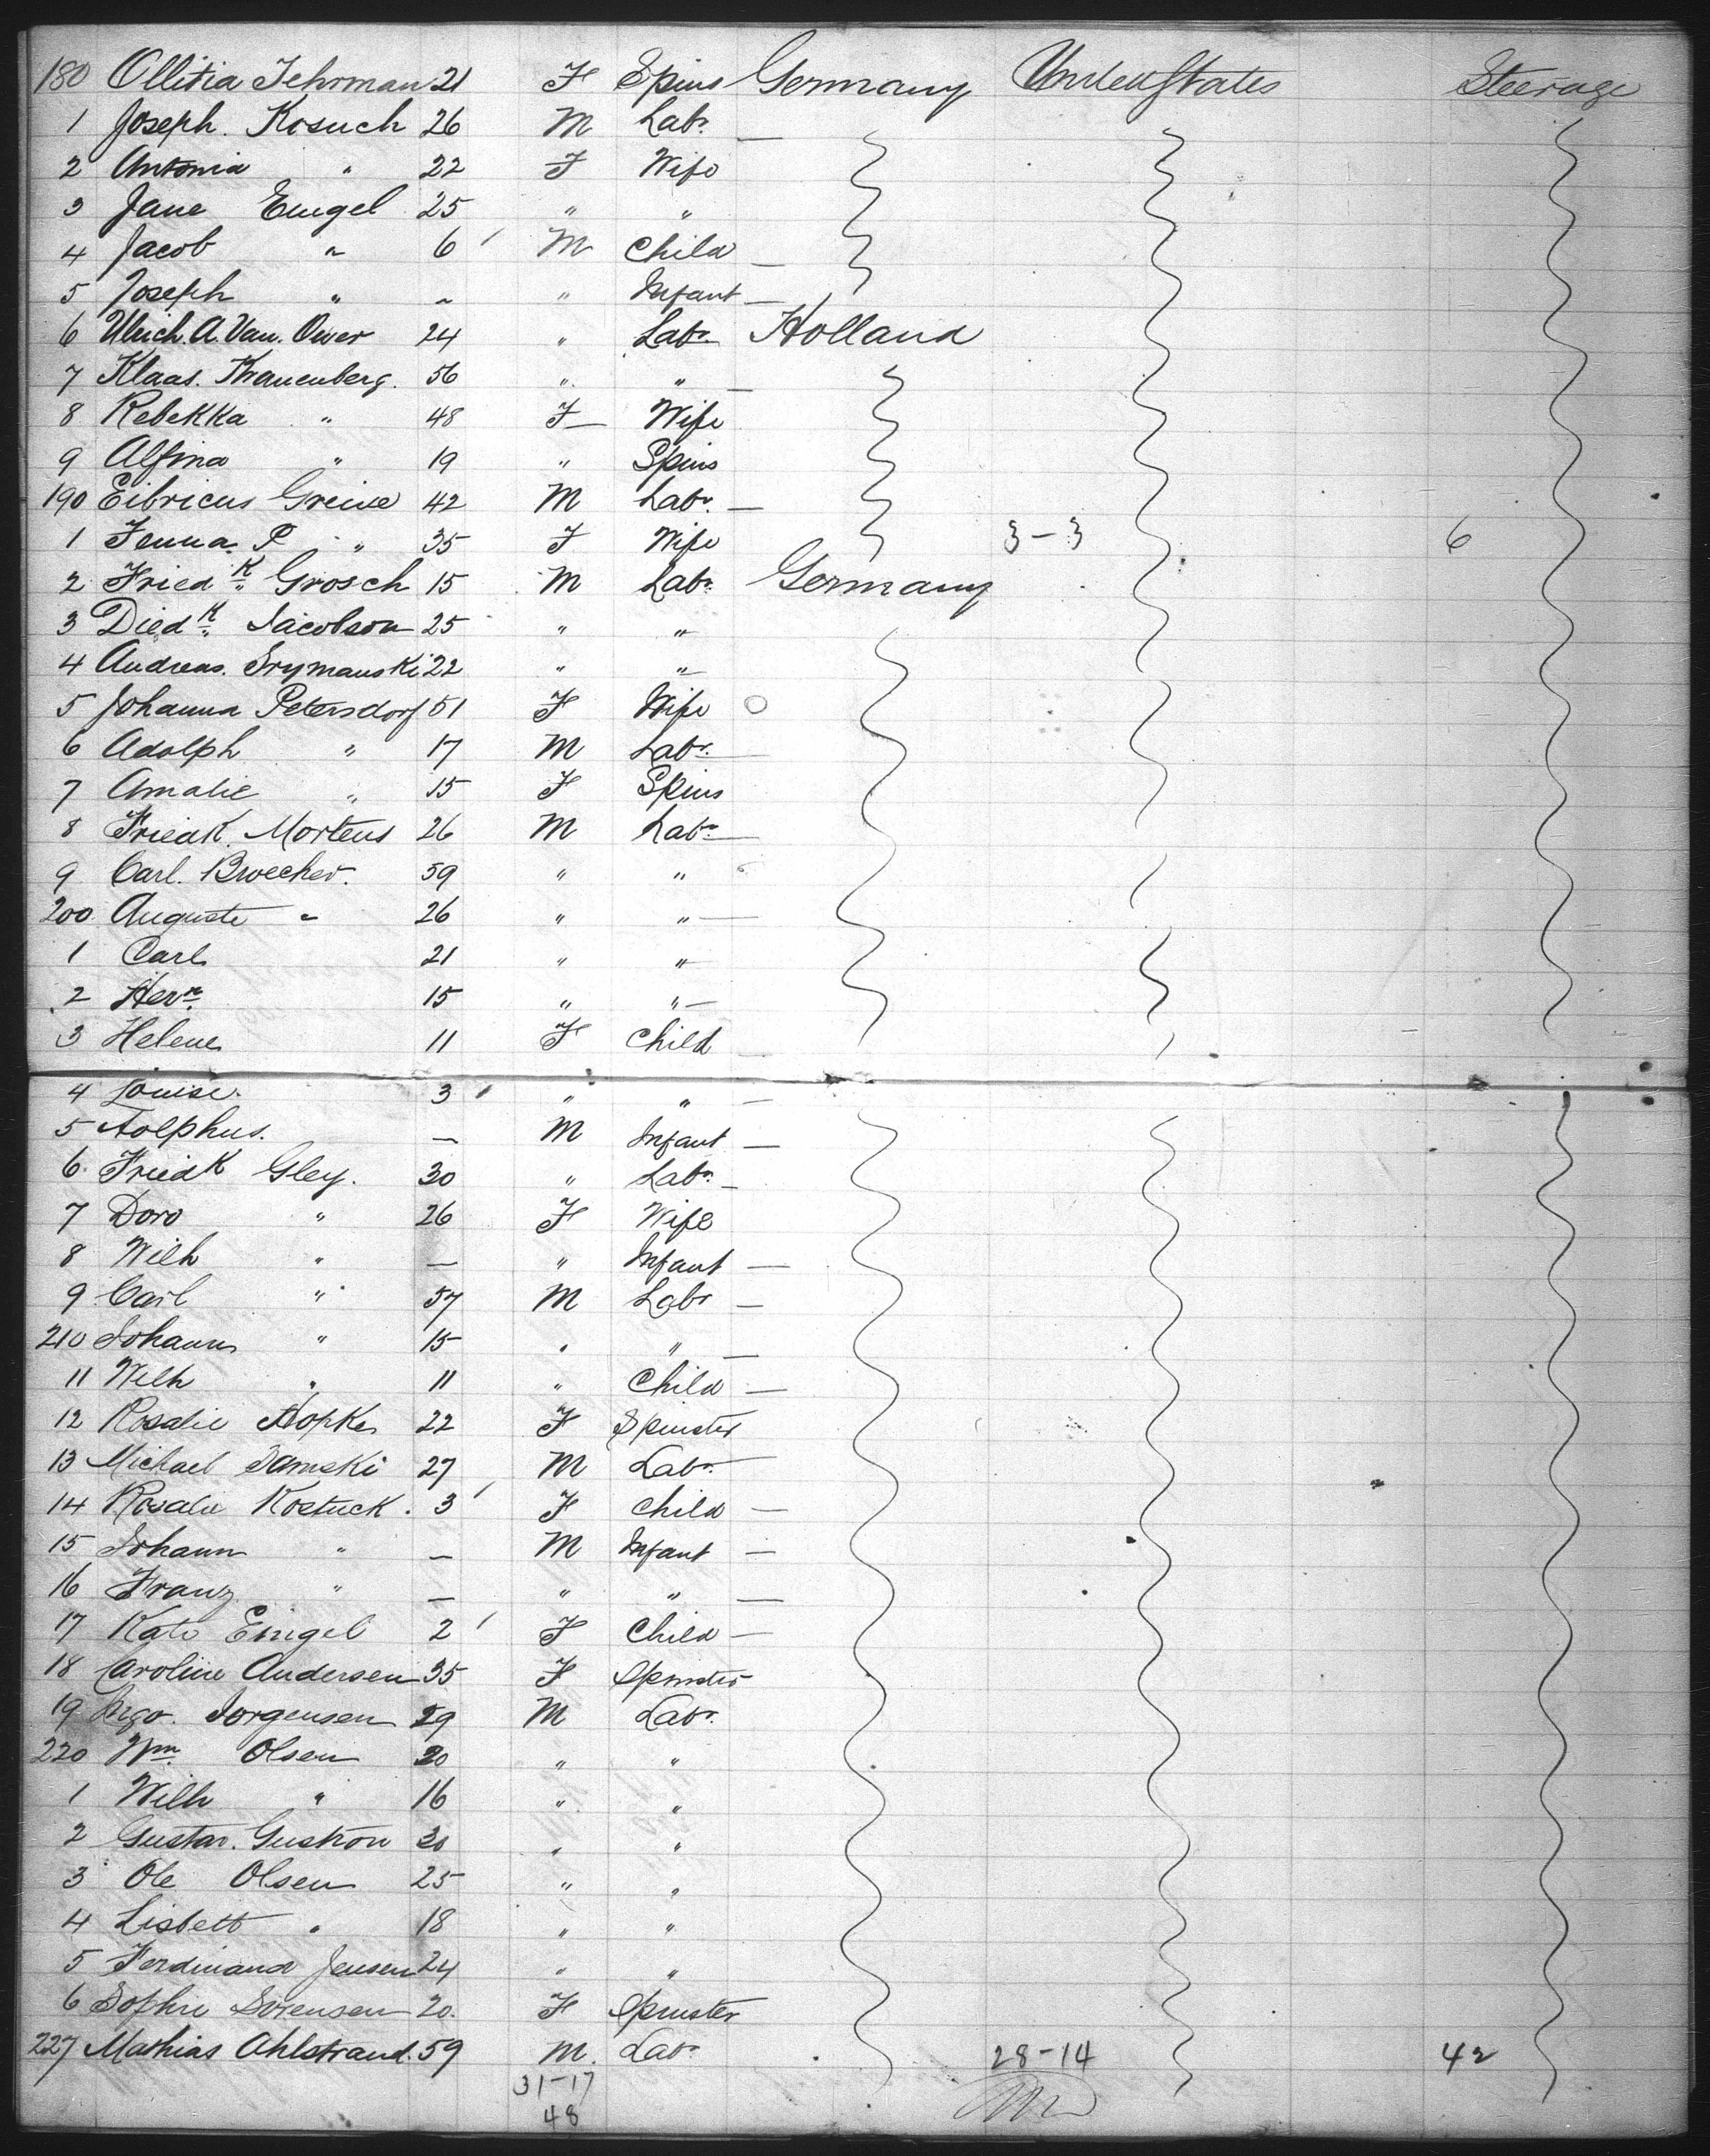 180 Ollitia Fehrman 21 F Spins Germany United States Steerage
1 Joseph. Kosuch 26 M Labr. —
2 Antonia " 22 F Wife
3 Jane Engel 25 " "
4 Jacob " 6 M Child —
5 Joseph " – " Infant —
6 Ulrich. A. Van. Over 24 " Labr Holland
7 Klaas. Kranenberg. 56 " " —
8 Rebekka " 48 F Wife
9 Alfina " 19 " Spins
190 Eibricus Greive 42 M Labr. —
1 Fenna. P " 35 F Wife 3-3 6
2 Fried K Grosch 15 M Labr. Germany
3 Died K Jacobson 25 " "
4 Andreas. Srymanski 22 " "
5 Johanna Petersdorf 51 F Wife
6 Adolph " 17 M Labr.
7 Amalie " 15 F Spins
8 Friedk. Mortens 26 M Labr
9 Carl. 59 " "
200 Auguste " 26 " " —
1 Carl 21 " "
2 Hern. 15 " " —
3 Helene 11 F Child —
4 Louise. 3 " " —
5 Aolphus. — M Infant —
6. Friedk Gley. 30 " Labr. —
7 Doro " 26 F Wife
8 Wilh " — " Infant —
9 Carl " 57 M Labr —
210 Johann " 15 " " —
11 Wilh " 11 " Child —
12 Rosalie Hopke 22 F Spinster
13 Michael Samski 27 M Labr.
14 Rosalie Kostuck. 3 F Child —
15 Johann " — M Infant —
16 Franz " — " " —
17 Kate Engel 2 F Child —
18 Caroline Andersen 35 F Spinster
19 Jorgensen 29 M Labr.
220 Wm. Olsen 20 " "
1 Wilh " 16 " "
2 Gustav. 30 " "
3 Ole Olsen 25 " "
4 Lisbett " 18 " "
5 Ferdinand Jensen 24 " "
6 Sophie Sorensen 20. F Spinster
227 Mathias Ahlstrand. 59 M. Labr 28-14 42
31-17
48